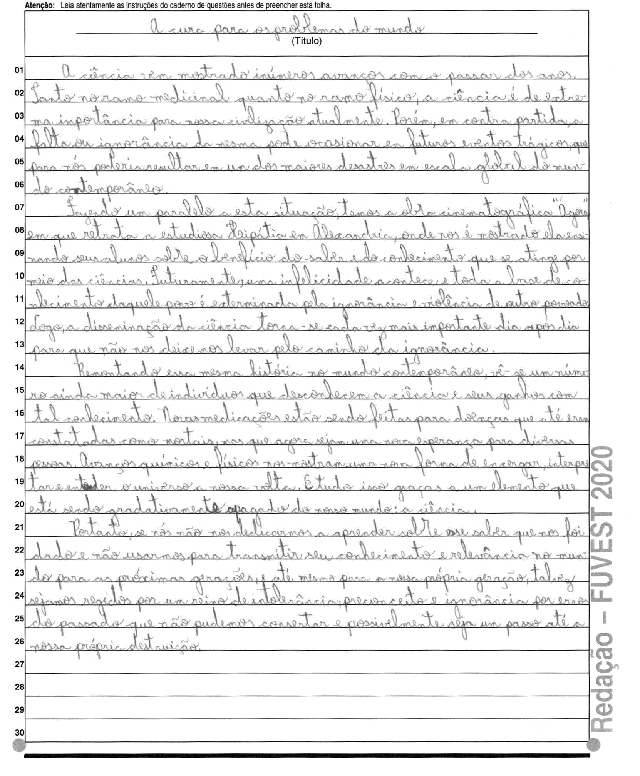 Atenção: Leia atentamente as instruções do caderno de questões antes de preencher esta folha.
A cura para os problemas do mundo
(Título)
01 A ciência vem mostrado inúmeros avanços com o passar dos anos.
02 Tanto no ramo medicinal quanto no ramo físico, a ciência é de extre-
03 ma importância para nossa civilização atualmente. Porém, em contra partida, a
04 falta ou ignorância da mesma pode ocasionar em futuros eventos trágicos, que
05 para nós poderia resultar em um dos maiores desastres em escala global do mun-
06 do contemporâneo.
07 Fazendo um paralelo a esta situação, temos a obra cinematográfica "Ágora"
08 em que retrata a estudiosa em Alexandria, onde nos é mostrado ela ensi-
09 nando seus alunos sobre o benefício do saber e do conhecimento que se atinge por
10 meio das ciências. Futuramente, uma infelicidade acontece e toda a rede de co-
11 nhecimento daquele povo é exterminada pela ignorância e violência de outro povoado
12 Logo, a disseminação da ciência torna-se cada vez mais importante dia após dia
13 para que não nos deixe nos levar pelo caminho da ignorância.
14 Remontando essa mesma história no mundo contemporâneo, vê-se um núme-
15 ro ainda maior de indivíduos que desconhecem a ciência e seus ganhos com
16 tal conhecimento. Novas medicações estão sendo feitas para doenças que até eram
17 constatadas como mortais mas que agora sejam uma nova esperança para diversas
18 pessoas. Avanços químicos e físicos nos mostram uma nova forma de enxergar, interpre
19 tar e entender o universo a nossa volta. E tudo isso graças a um elemento que
20 está sendo gradativamente apagado do nosso mundo: a ciência.
21 Portanto, se nós não nos dedicarmos a aprender sobre esse saber que nos foi
22 dado e não usarmos para transmitir seu conhecimento e relevância no mun-
23 do para as próximas gerações, e até mesmo para a nossa própria geração, talvez
24 sejamos regidos por um reino de intolerância, preconceito e ignorância por erros
25 do passado que não pudemos consertar e possivelmente seja um passo até a
26 nossa própria destruição.
27
28
29
30
Redação – FUVEST 2020